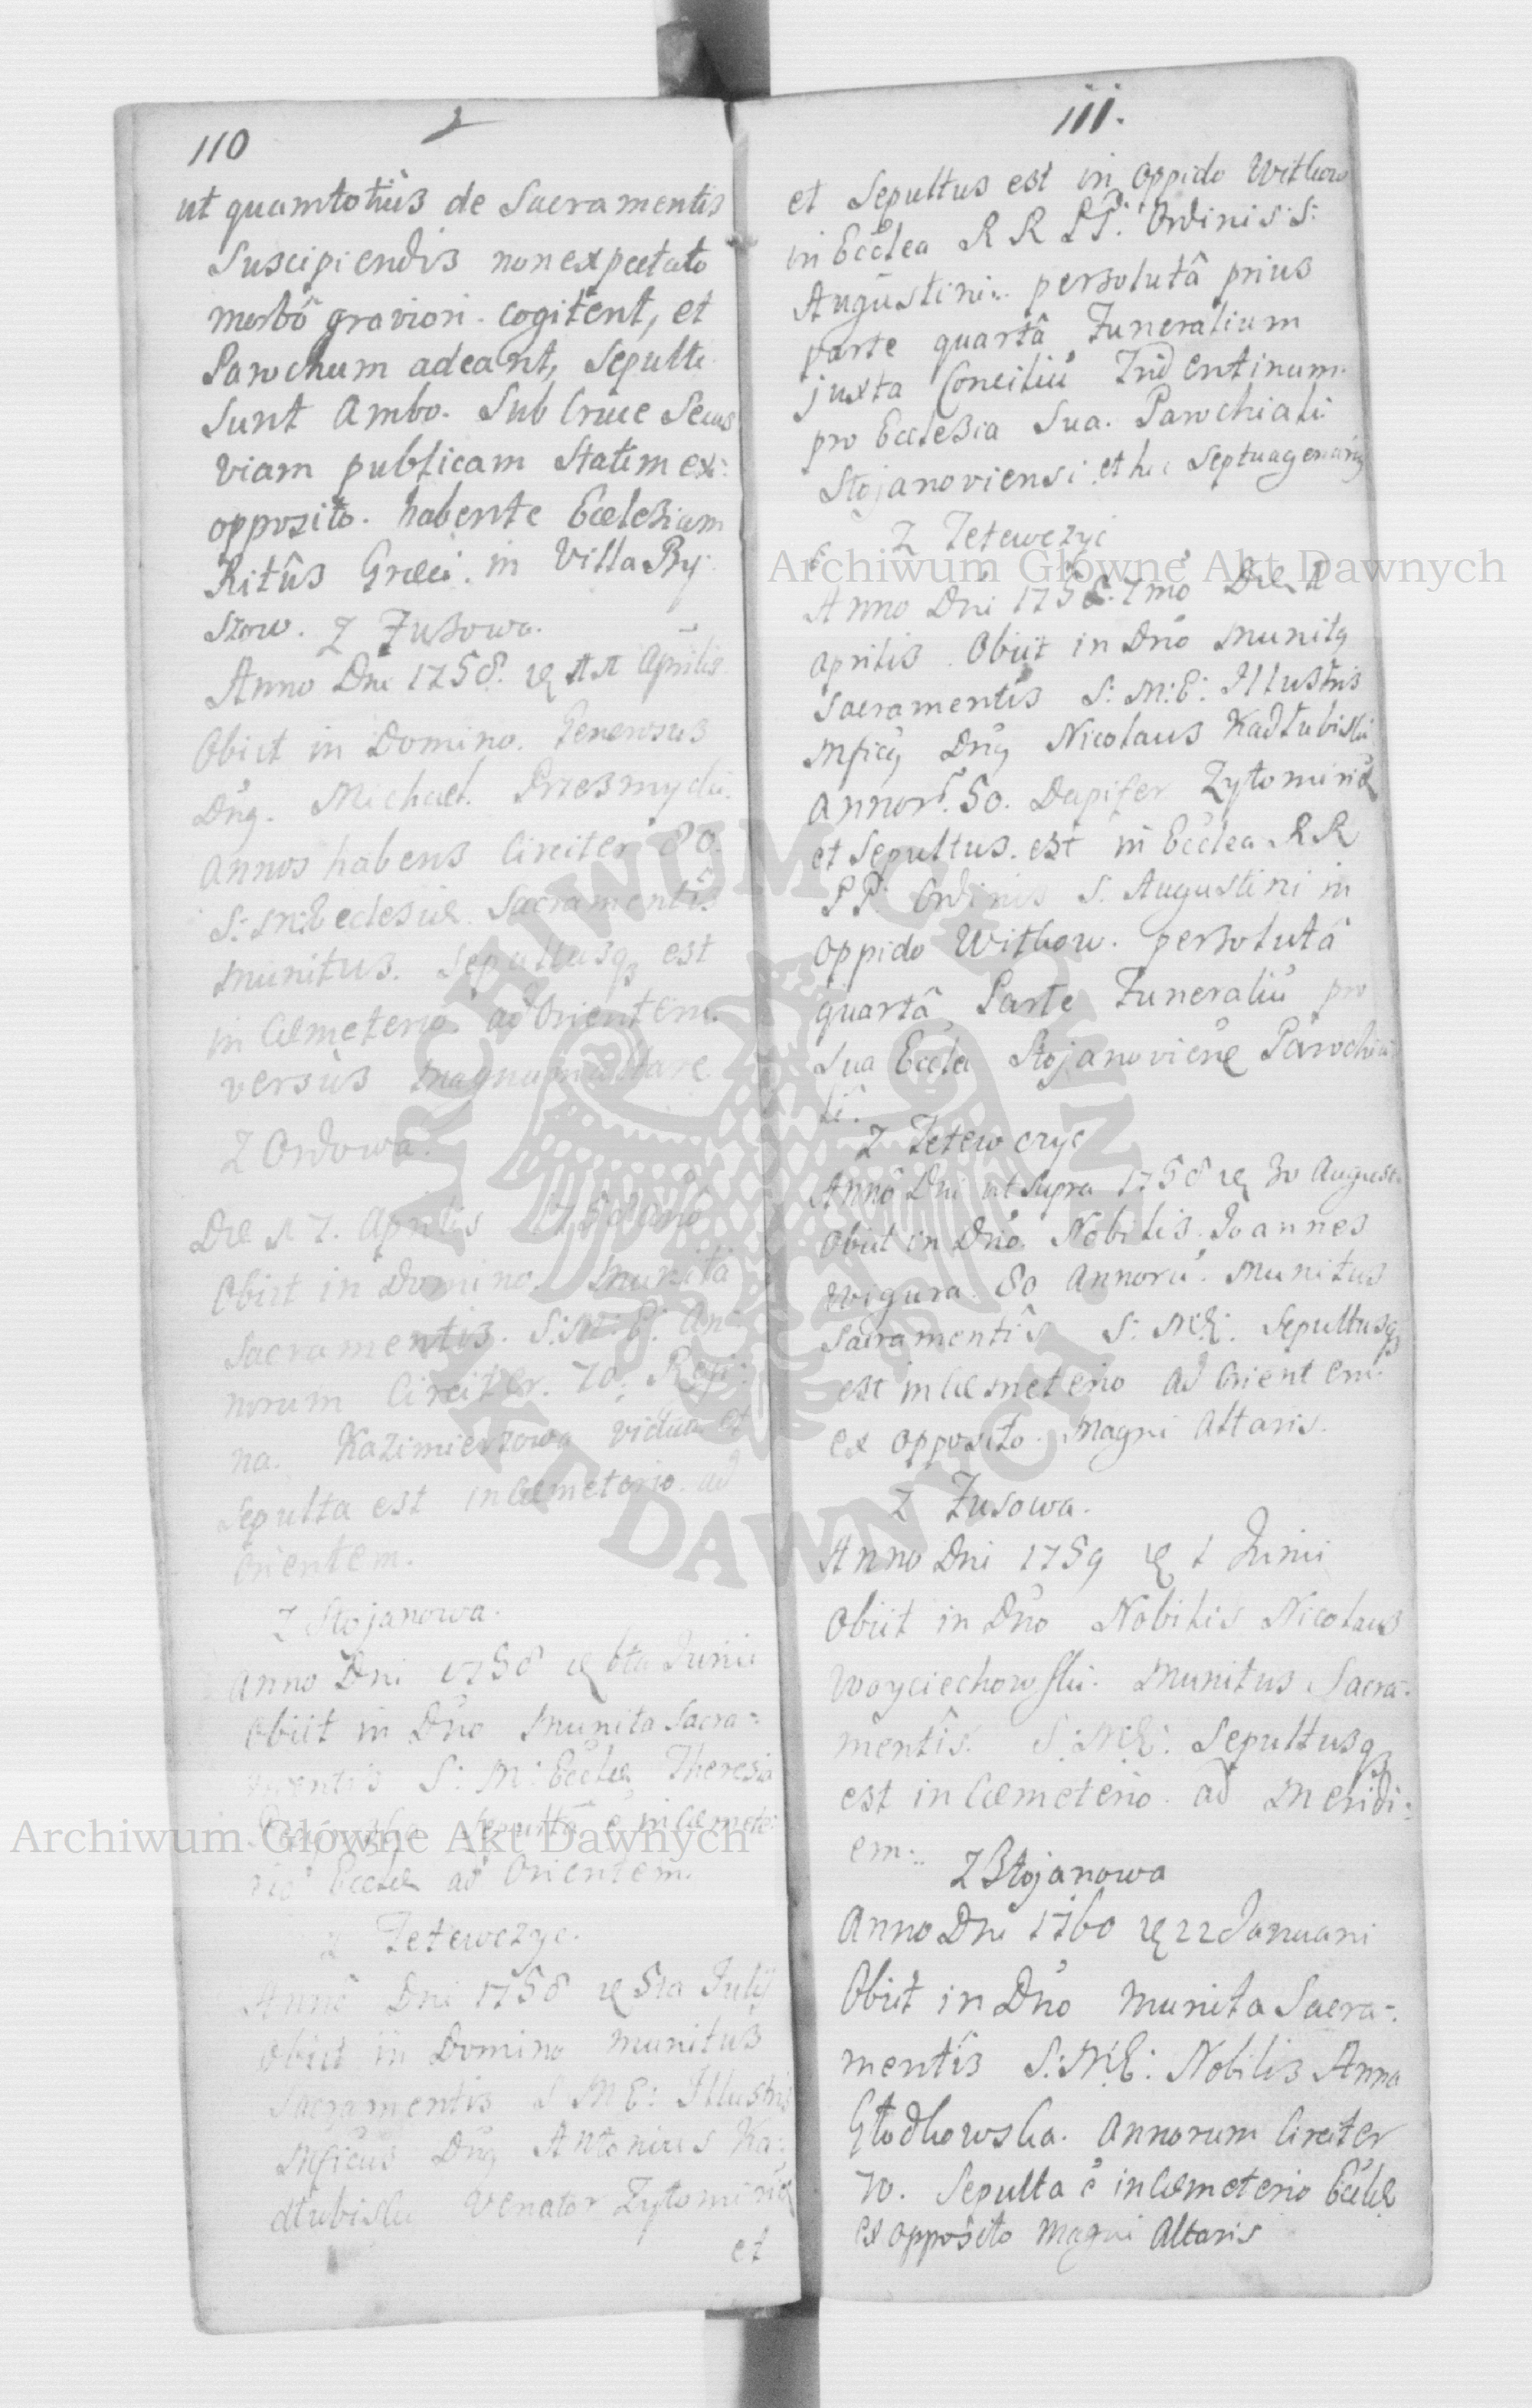 110
ut quamtotiûs de Sacramentis
Suscipiendis non expectato
morbô graviori. cogitent, et
Parochum adeant, Sepulti
Sunt Ambo. Sub Cruce Secus
viam publicam Statim ex:
opposito. habente Ecclesiam
Ritûs Græci. in Villa
Z Zuzowa.
Anno Dni 1758. Aprilis
Obiit in Domino. Generosus
Dng. Michael.
Annos habens Circiter 80.
S: M: Ecclesiæ. Sacramentis
munitus. Sepultusq3 est
in Cæmeterio. ad Orientem.
versùs magnum altare
Z Ordowa.
Die 17. Aprilis 1758
Obiit in Domino. munita
Sacramentis. S: M: E: An:
norum Circiter. 70. Regi:
na. Kazimierzowa vidua et
Sepulta est in Cæmeterio. ad
Orientem.
Z Stojanowa.
Anno Dni 1758 6ta Junii
Obiit in Dno munita Sacra-:
mentis S: M: Ecclæ Theresia
Sepulta ẽ in Cæmete:
rio Ecclæ ad Orientem.
z Tetewczyc.
Annô Dni 1758 5ta Julij
Obiit in Domino munitus
Sacramentis S M E: Illustris
Mficus Dng Antonius Ka:
dłubiski Venator
et
111.
et Sepultus est in Oppido Witkow
in Ecclea R R PP: Ordinis S:
Augustini. persolutâ prius
parte quartâ Funeralium
juxta Conciliũ Tridentinum.
pro Ecclesia Sua. Parochiali
Stojanoviensi et hic
Z Tetewczyc
Archiwum Główne Akt Dawnych
Anno Dni
Aprilis. Obiit in Dno munitg
Sacramentis S: M: E: Illustris
Mficg Dng Nicolaus Kadłubiski
Annor. 50. Dapifer
et Sepultus. est in Ecclea R R
P P: Ordinis S. Augustini in
Oppido Witkow. persolutâ
quartâ Parte Funeraliũ pro
Sua Eccla Parochia
li.
Z Tetewczyc
Annô Dni ut Supra 1758 30 Augusti
Obiit in Dno. Nobilis. Joannes
Wigura. 80 Annorũ. Munitus
Sacramentîs S: M: E: Sepultusq3
est in Cæmeterio ad Orientem.
ex opposito. Magni Altaris.
Z Zusowa.
Anno Dni 1759 1 Junii
Obiit in Dno Nobilis Nicolaus
Woyciechowski. Munitus Sacra-:
mentîs. S: M: E: Sepultusq3
est in Cæmeterio. ad Meridi:
em:.
Z Stojanowa
Anno Dni 1760 22 Januarii
Obiit in Dno Munita Sacra-:
mentis S: M: E: Nobilis Anna
Głodkowska. Annorum Circiter
70. Sepulta ẽ in Cæmeterio Ecclæ
ex opposito Magni Altaris
Archiwum Główne Akt Dawnych
ARCHIWUM GŁÓWNE
AKT DAWNYCH